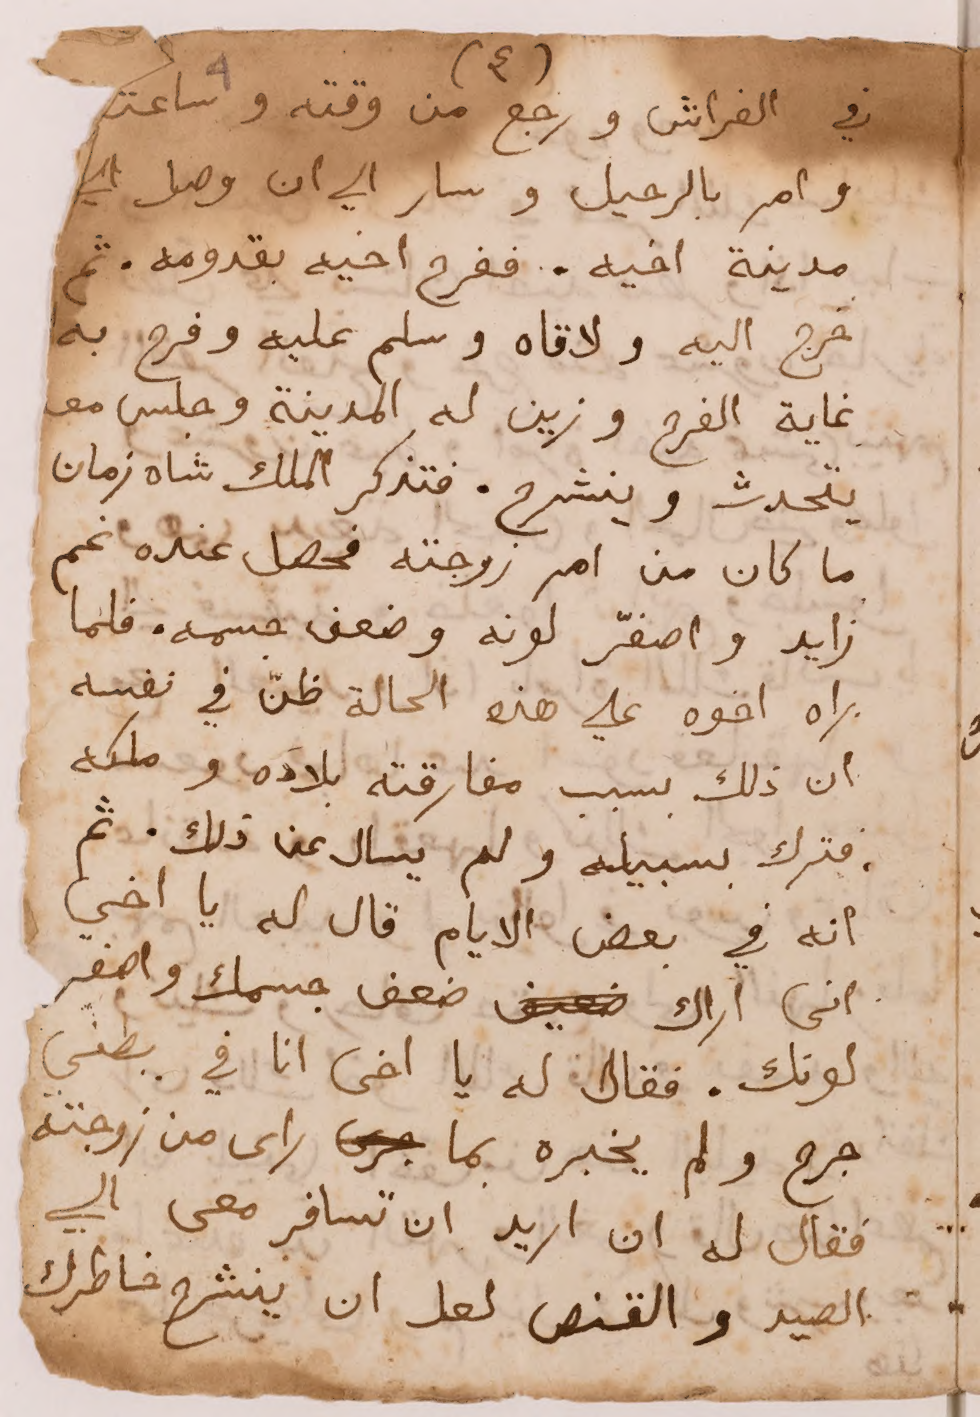 (٤)
في الفراش و رجع من وقته و ساعته
و امر بالرحيل و سار الي ان وصل الي
مدينة اخيه . ففرح اخيه بقدومه . ثم
خرج اليه و لاقاه و سلم عليه و فرح به
غاية الفرح و زين له المدينة و جلس معه
يتحدث و ينشرح . فتذكر الملك شاه زمان
ما كان من امر زوجته فحصل عنده غم
زايد و اصفرّ لونه و ضعف جسمه . فلما
راه اخوه علي هذه الحالة ظنّ في نفسه
ان ذلك بسبب مفارقته بلاده و ملكه
فترك بسبيله و لم يسال عن ذلك . ثم
انه في بعض الايام قال له يا اخي
انى اراك ضعيف ضعف جسمك و اصفر
لونك . فقال له يا اخى انا في بطني
جرح و لم يخبره بما جرى راى من زوجته
فقال له ان اريد ان تسافر معى الي
الصيد و القنص لعل ان ينشرح خاطرك